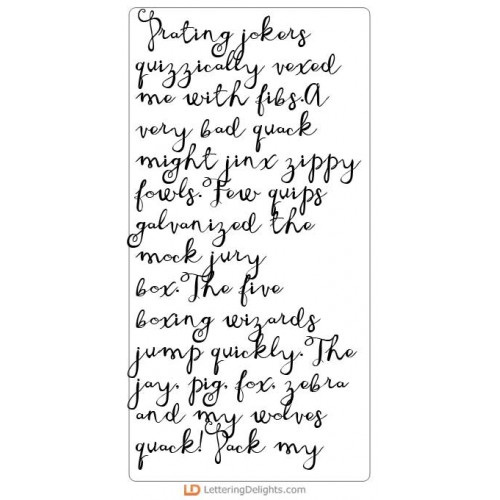 Prating jokers
quizzically vexed
me with fibs.A
very bad quack
might jinx zippy
fowls. Few quips
galvanized the
mock jury
box. The five
boxing wizards
jump quickly. The
jay, pig, fox, zebra
and my wolves
quack! Pack my
LD LetteringDelights.com